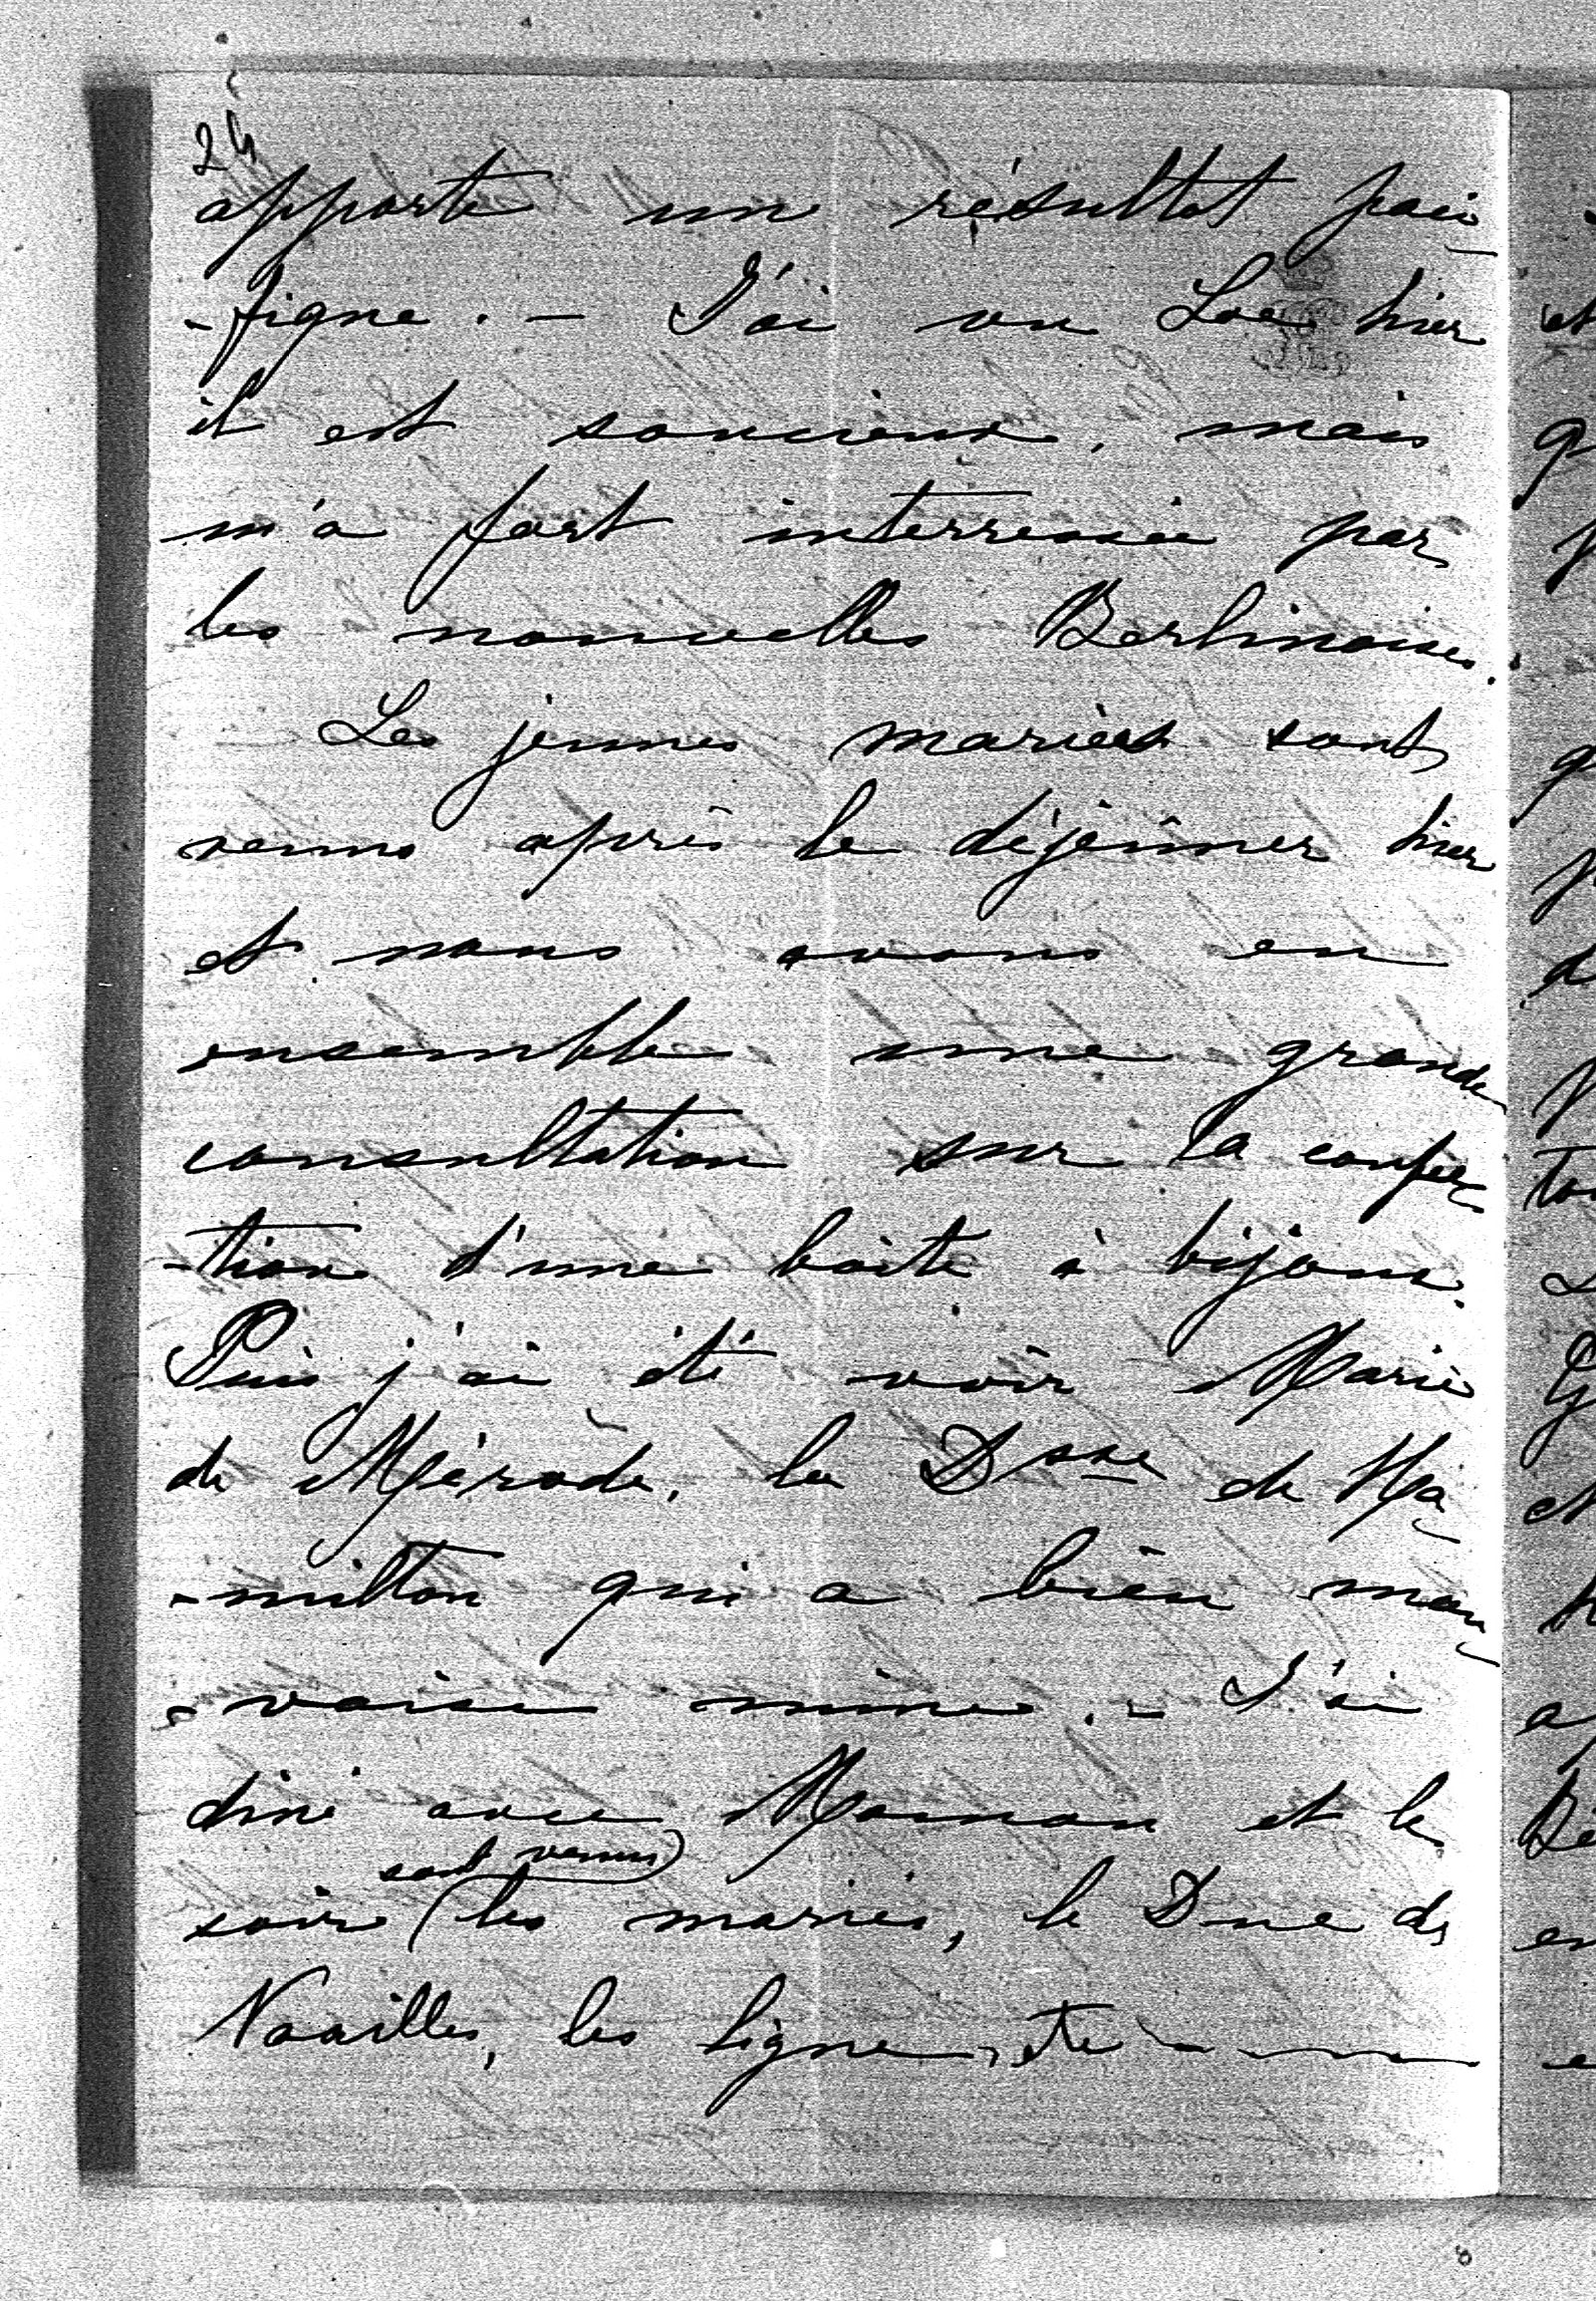 24
apporte un résultat paci
-figue. - J'ai vu Loë hier
il est soucieux, mais
m'a fort interressée par
les nouvelles Berlinoises.
Les jeunes mariés sont
venus après le déjeûner hier
et nous avons eu
ensemble une grande
consultation sur la confec
-tion d'une boite à bijoux.
Puis j'ai été voir Marie
de Mérode, la Dsse de Ha
-milton qui a bien mau
-vaise mine. - J'ai
diné avec Maman et le
sont venus
soir les mariés, le Duc de
Noailles, les Ligne, etc